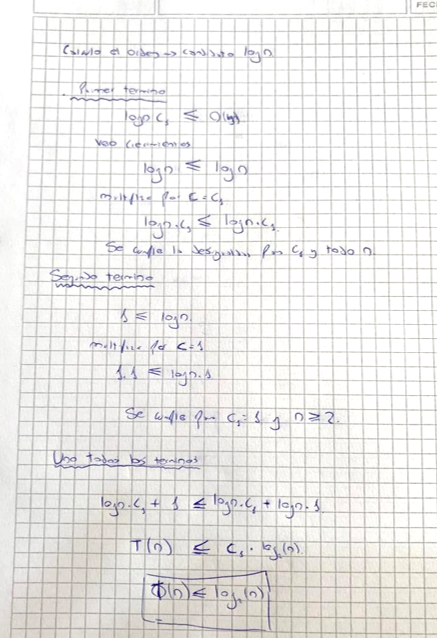 FEC
Calculo el orden → candidato log n
. Primer termino
log n c₁ ≤ O(log)
veo crecimientos
log n ≤ log n
multiplico por C = C₁
log n . c₁ ≤ log n . c₁
Se cumple la desigualdad para C₁ y todo n.
Segundo termino
1 ≤ log n.
multiplico por C = 1
1 . 1 ≤ log n . 1
Se cumple para C₁ = 1 y n ≥ 2.
Uno todos los terminos
log n . c₁ + 1 ≤ log n . c₁ + log n . 1
T(n) ≤ C₁ . log₂(n).
O(n) ≤ log₂(n)